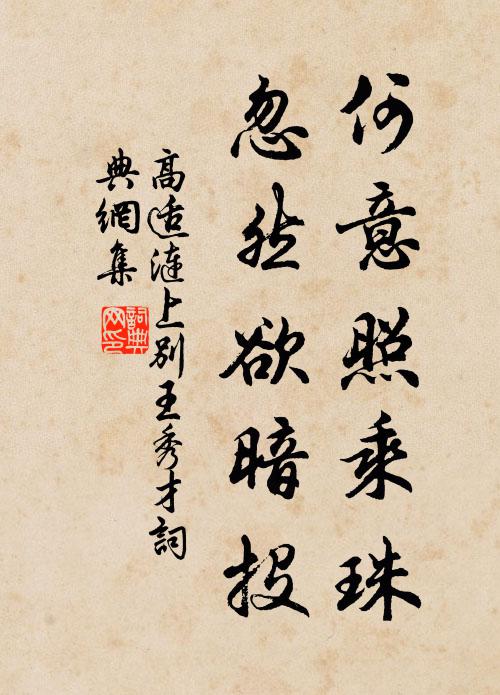 何意照乘珠
忽然欲暗投
高适涟上别王秀才詞
典網集
詞典
网印